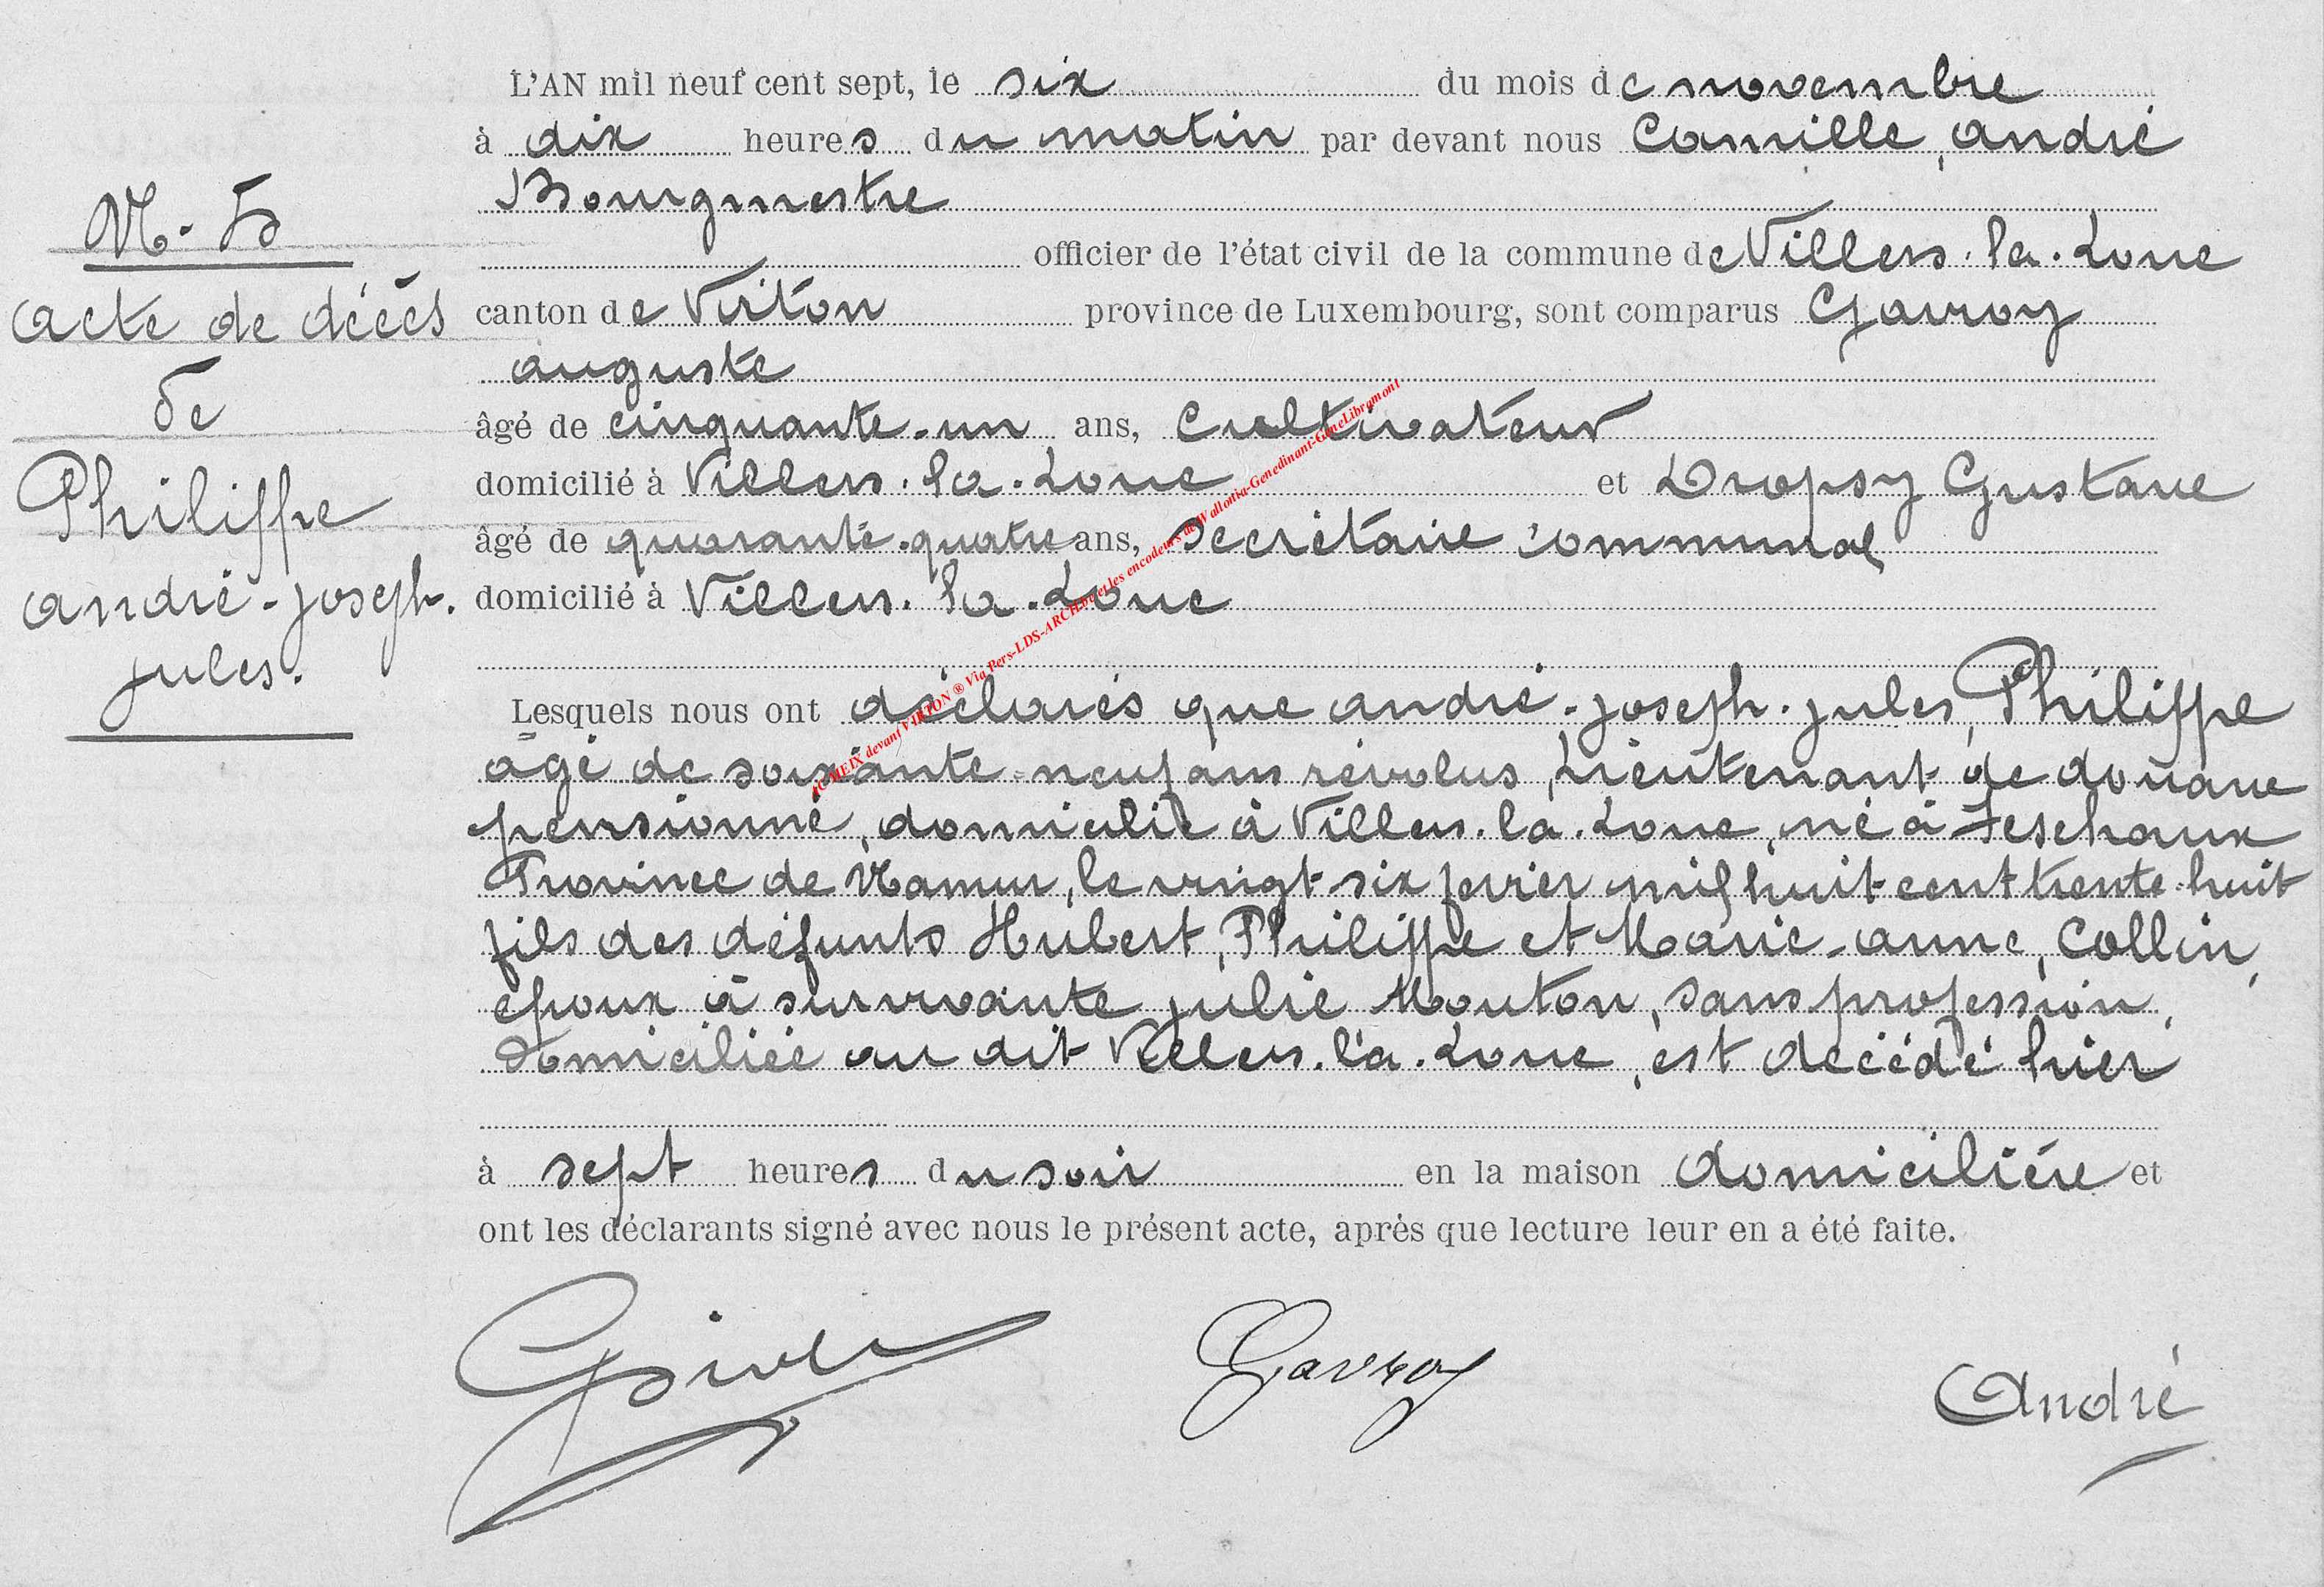 L'AN mil neuf cent sept, le six du mois de novembre
à dix heures du matin par devant nous Camille, andré
Bourgmestre
officier de l'état civil de la commune de Villers-la-Loue
canton de Virton province de Luxembourg, sont comparus Gavroy
auguste
âgé de cinquante-un ans, Cultivateur
domicilié à Villers-la-Loue et Dropsy Gustave
âgé de quarante-quatre ans, secrétaire communal
domicilié à Villers-la-Loue
N. 5
acte de décès
de
Philippe
andré-joseph.
jules.
Lesquels nous ont déclarés que andré-joseph-jules, Philippe
agé de soixante-neuf ans révolus, Lieutenant de douane
pensionné, domicilié à Villers-la-Loue, né à Feschaux
Province de Namur, le vingt-six fevrier mil huit cent trente-huit
fils des défunts Hubert, Philippe et Marie-anne, Collin,
époux à survivante julie Mouton, sans profession,
domiciliée au dit Villers-la-Loue, est décédé hier
à sept heures du soir en la maison domicilière et
ont les déclarants signé avec nous le présent acte, après que lecture leur en a été faite.
Gavroy
André